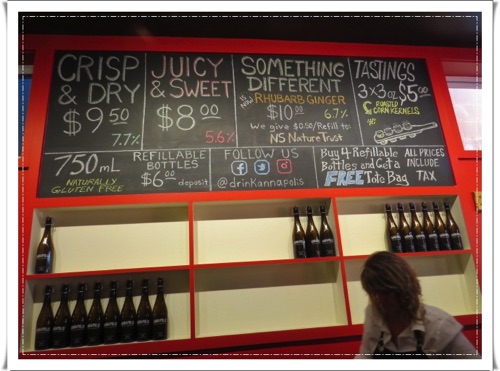 CRISP
& DRY
$9.50
7.7%
JUICY
& SWEET
$8.00
5.6%
SOMETHING
DIFFERENT
IS NOW RHUBARB GINGER
$10.00 6.7%
we give $0.50/Refill to:
NS Nature Trust
TASTINGS
3x3oz $5.00
ROASTED
CORN KERNELS
750 mL
NATURALLY
GLUTEN FREE
REFILLABLE
BOTTLES
$6.00 deposit
FOLLOW US
@drinkannapolis
Buy 4 Refillable
Bottles and Get a
FREE Tote Bag
ALL PRICES
INCLUDE
TAX